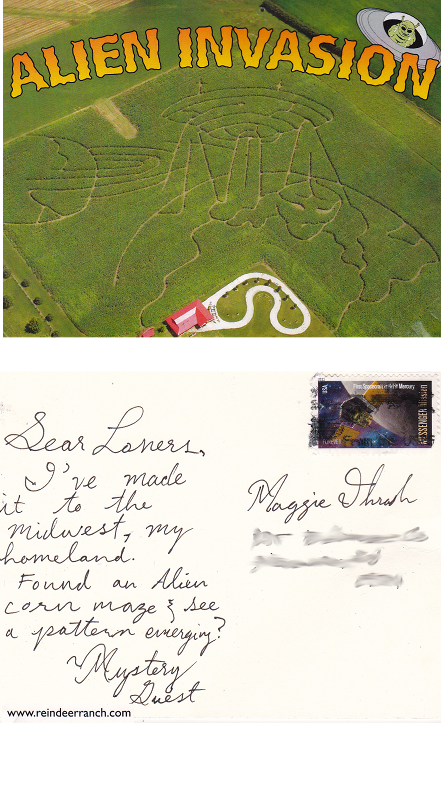 ALIEN INVASION
USA First Spacecraft to Orbit Mercury
FOREVER
MESSENGER Mission
Dear Loners,
I've made
it to the
midwest, my
homeland.
Found an Alien
corn maze & see
a pattern emerging?
~Mystery
Guest
Maggie Thrash
www.reindeerranch.com